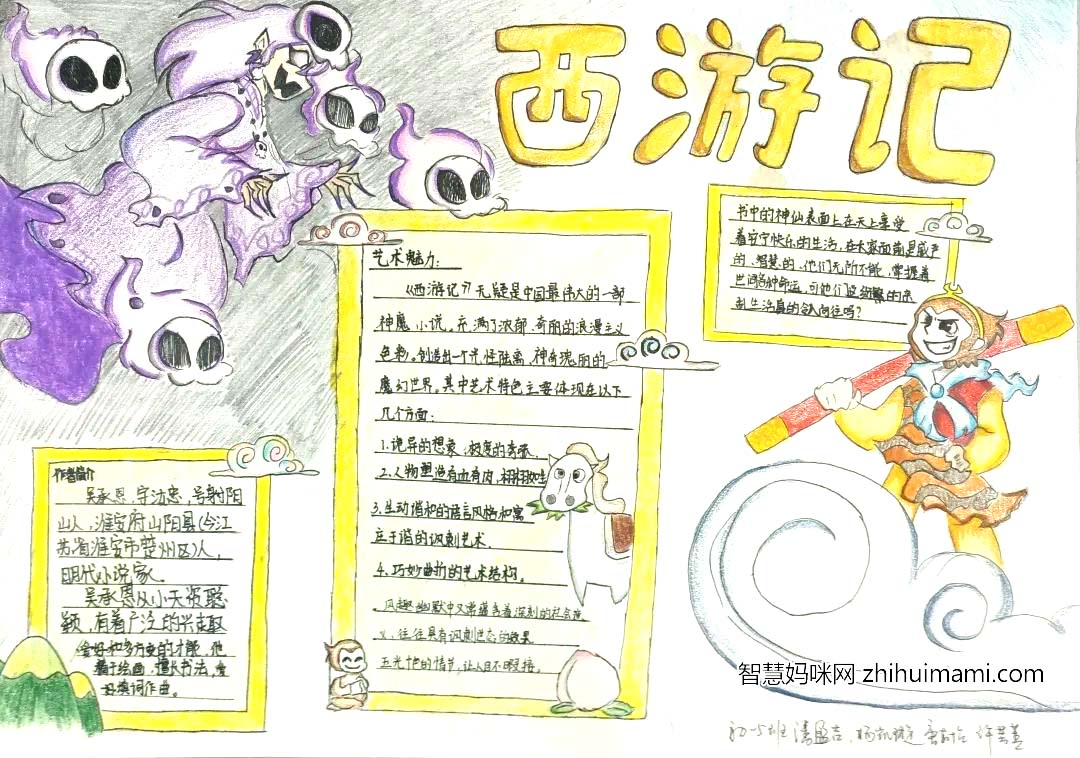 西游记
书中的神仙表面上在天上享受
着安宁快乐的生活,在大家面前是威严
的、智慧的、他们无所不能,掌握着
世间各种命运,可他们这
乱生活真的令人向往吗?
艺术魅力:
《西游记》无疑是中国最伟大的一部
神魔小说。充满了浓郁、奇丽的浪漫主义
色彩。创造出一个光怪陆离、神奇瑰丽的
魔幻世界。其中艺术特色主要体现在以下
几个方面:
1.诡异的想象、极度的夸张
2.人物塑造有血有肉,栩栩如生
3.生动谐和的语言风格和寓
庄于谐的讽刺艺术.
4.巧妙曲折的艺术结构。
风趣幽默中又蕴含着深刻的社会意
义,往往具有讽刺世态的效果
五光十色的情节,让人目不暇接。
作者简介
吴承恩,字汝忠,号射阳
山人,淮安府山阳县(今江
苏省淮安市楚州区)人,
明代小说家.
吴承恩从小天资聪
颖,有着广泛的兴趣
爱好和多方面的才能,他
善于绘画,擅长书法,爱
好填词作曲。
智慧妈咪网 zhihuimami.com
初一5班